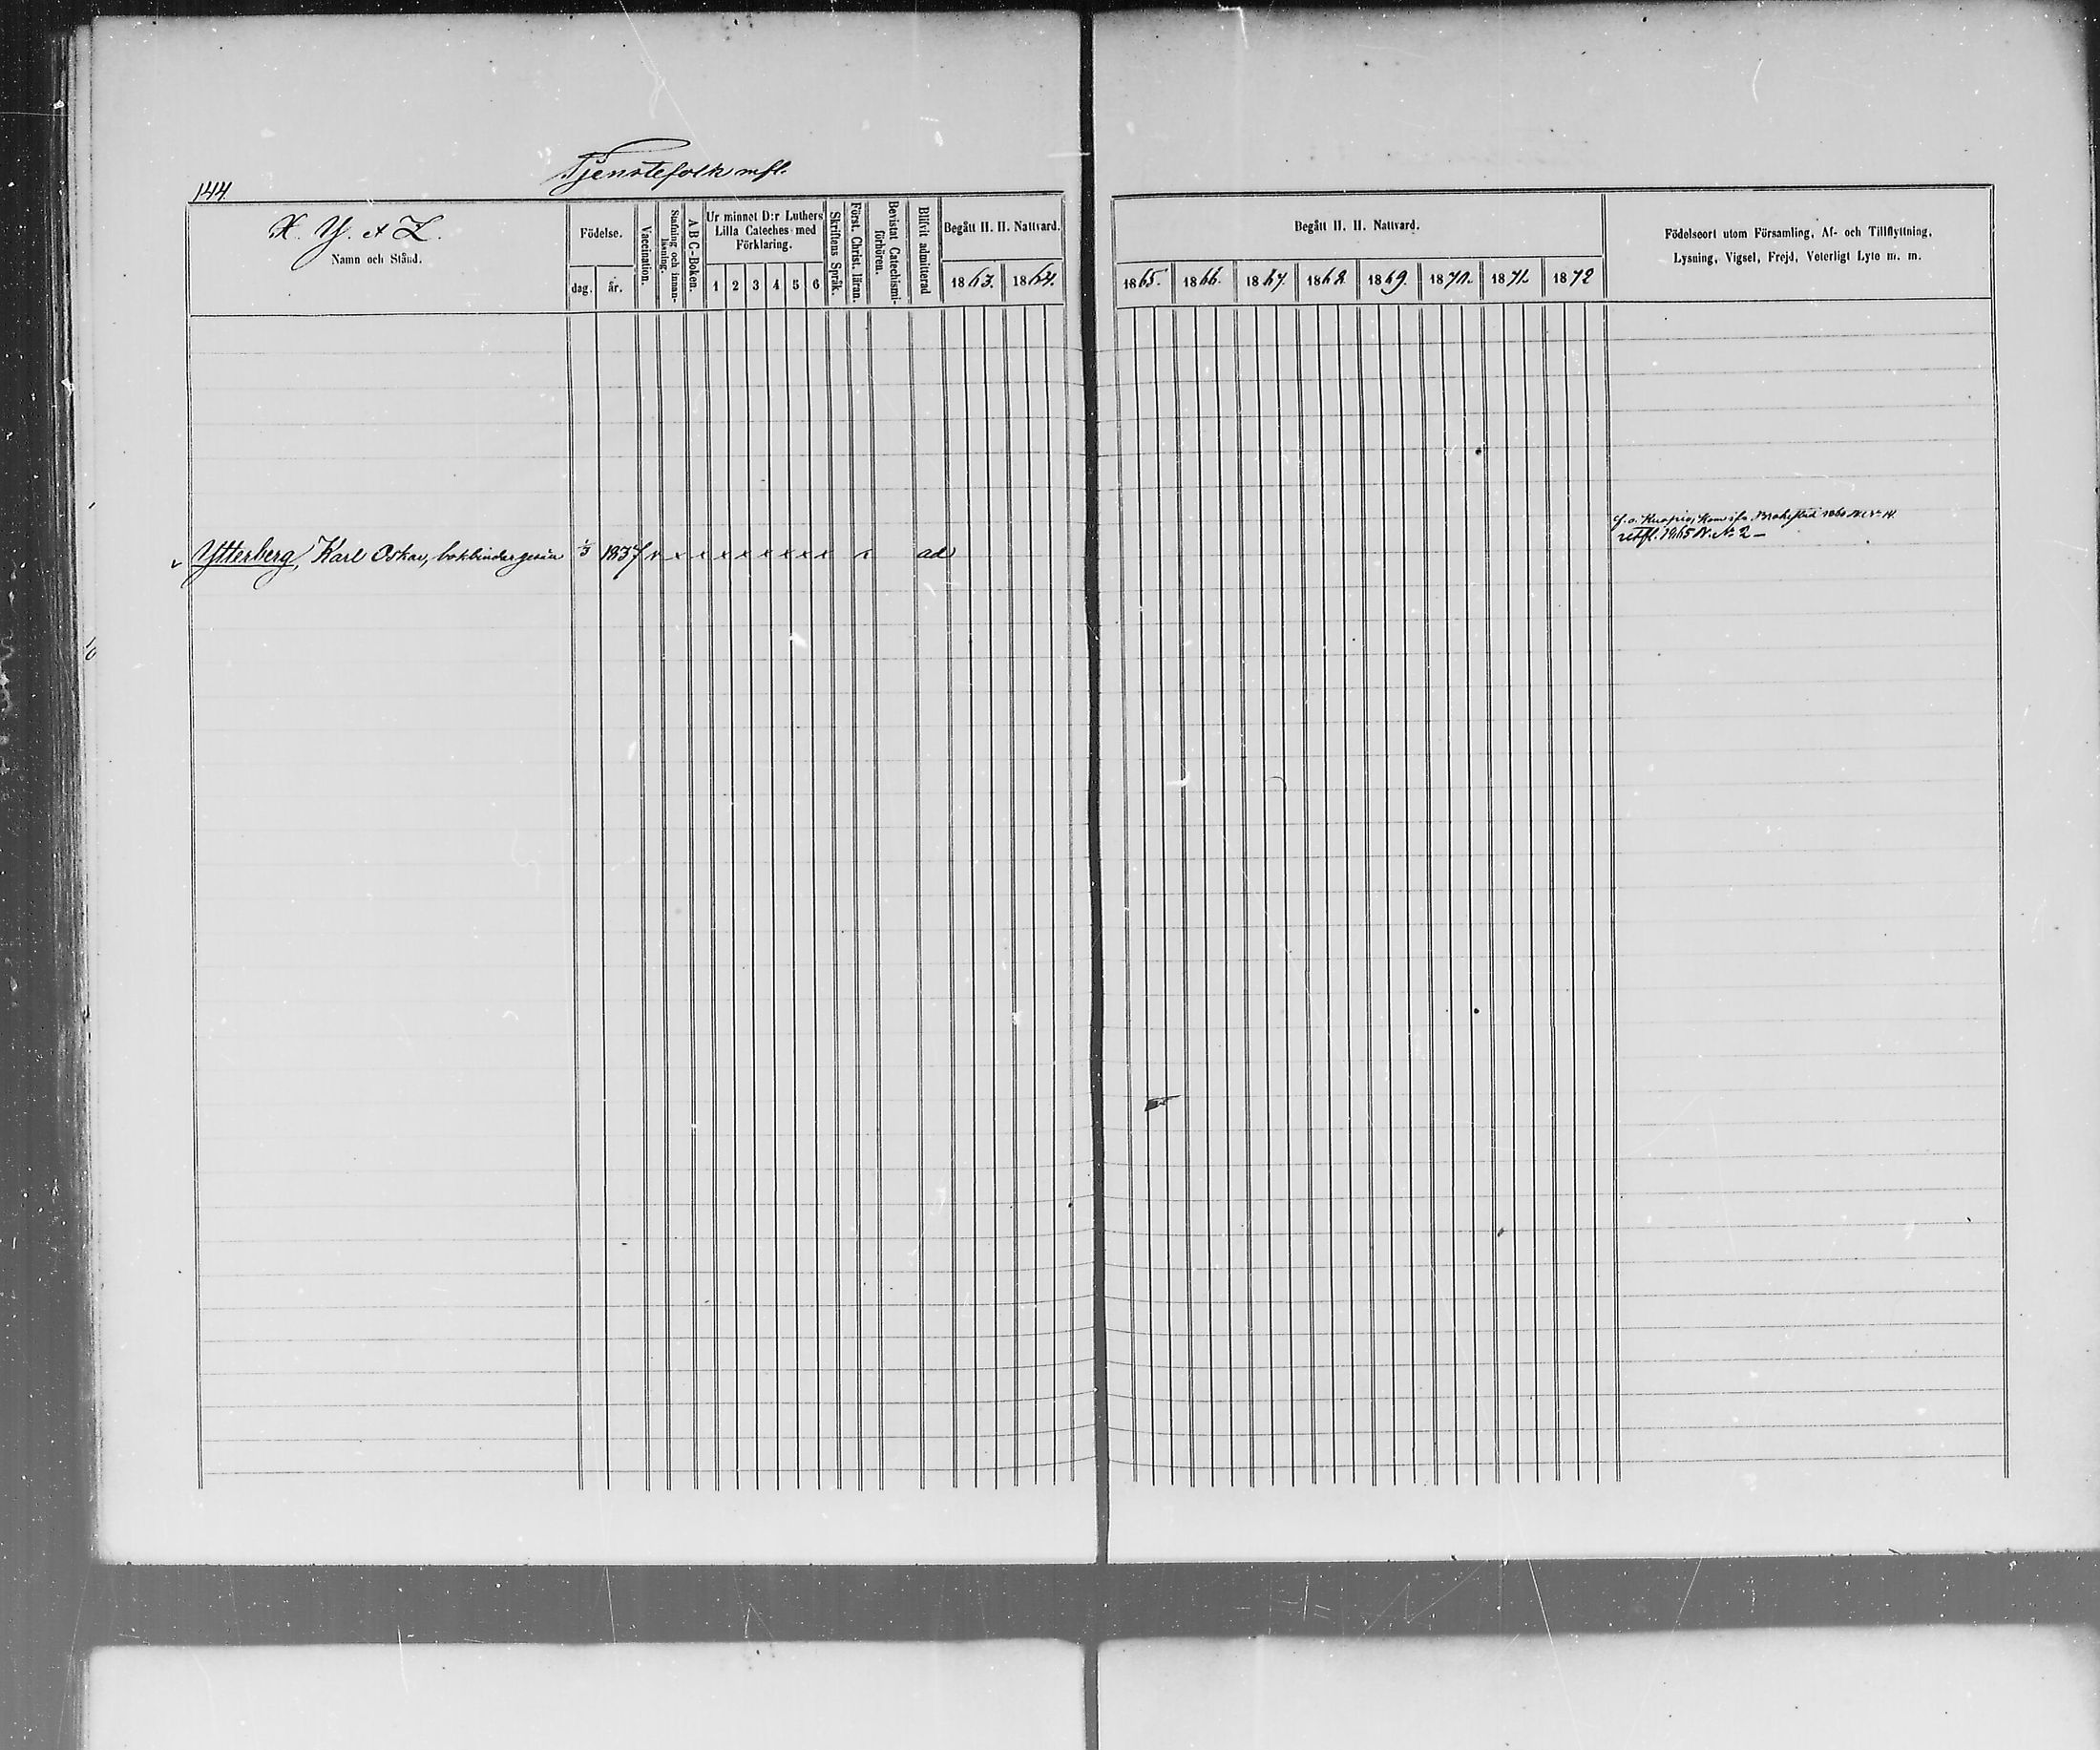 144.
Tjenstefolk mfl.
X. Y. et Z.
Namn och Stånd.
Födelse.
dag.
år.
Vaccination.
Stafning och innan-
läsning.
A B C-Boken.
Ur minnet D:r Luthers
Lilla Cateches med
Förklaring.
1 2 3 4 5 6
Skriftens Språk.
Först. Christ. läran.
Bevistat Catechismi-
förhören.
Blifvit admitterad
Begått H. H. Nattvard.
1863. 1864.
Begått H. H. Nattvard.
1865. 1866. 1867. 1868. 1869. 1870. 1871. 1872
Födelseort utom Församling, Af- och Tillflyttning,
Lysning, Vigsel, Frejd, Veterligt Lyte m. m.
f. o. Kuopio, kom ifr. Brahestad 1860
utfl. 1865 N. No 2 –
Ytterberg, Karl Oskar, bokbindargesäll 1/3 1837 v x x x x x x x x x ad